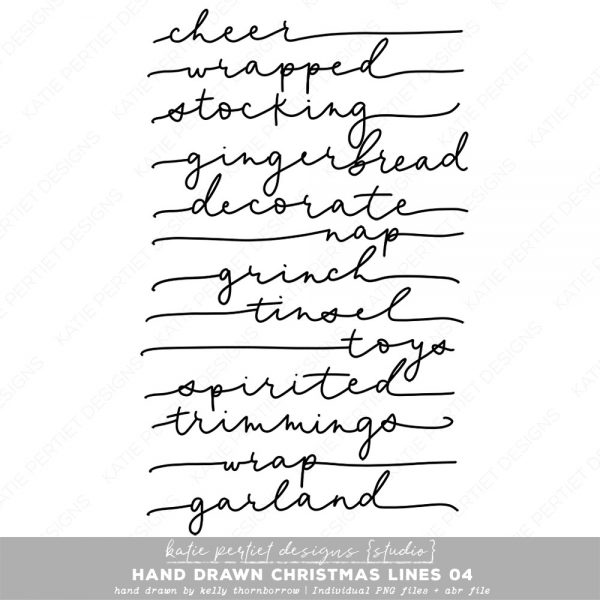 cheer
wrapped
stocking
gingerbread
decorate
nap
grinch
tinsel
toys
spirited
trimmings
wrap
garland
katie pertiet designs {studio}
HAND DRAWN CHRISTMAS LINES 04
hand drawn by kelly thornborrow | Individual PNG files + abr file
KATIE PERTIET DESIGNS